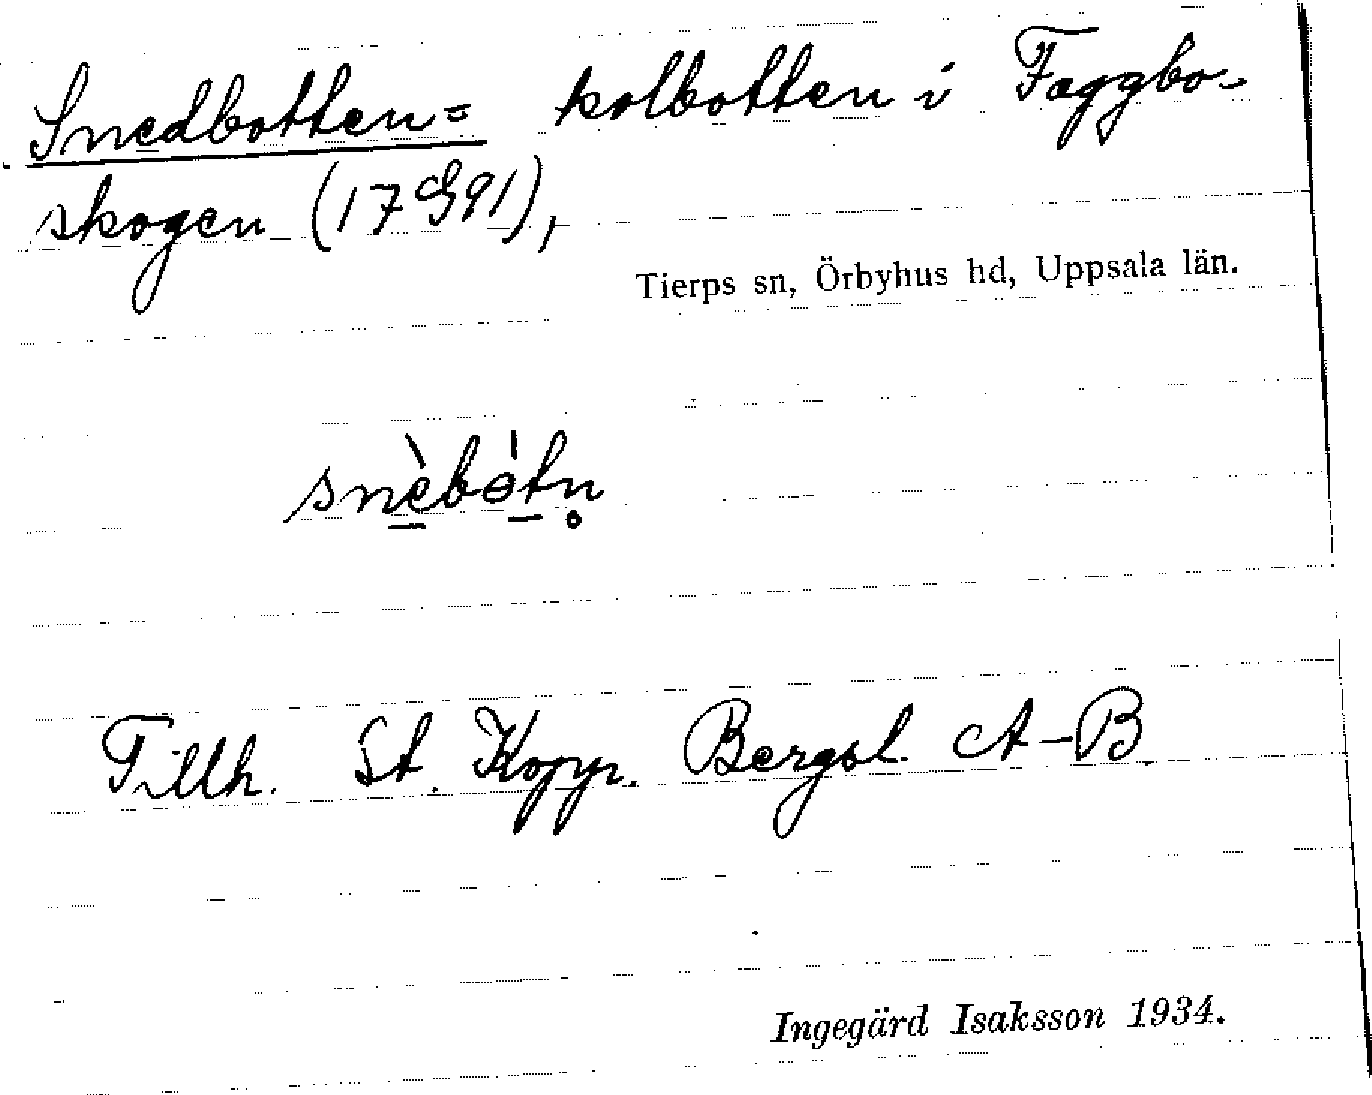 Snedbotten= kolbotten i Faggbo-
skogen (17G91),
Tierps sn, Örbyhus hd, Uppsala län.
snèbòtn̥
Tillh. St. Kopp. Bergsl. A-B.
Ingegärd Isaksson 1934.